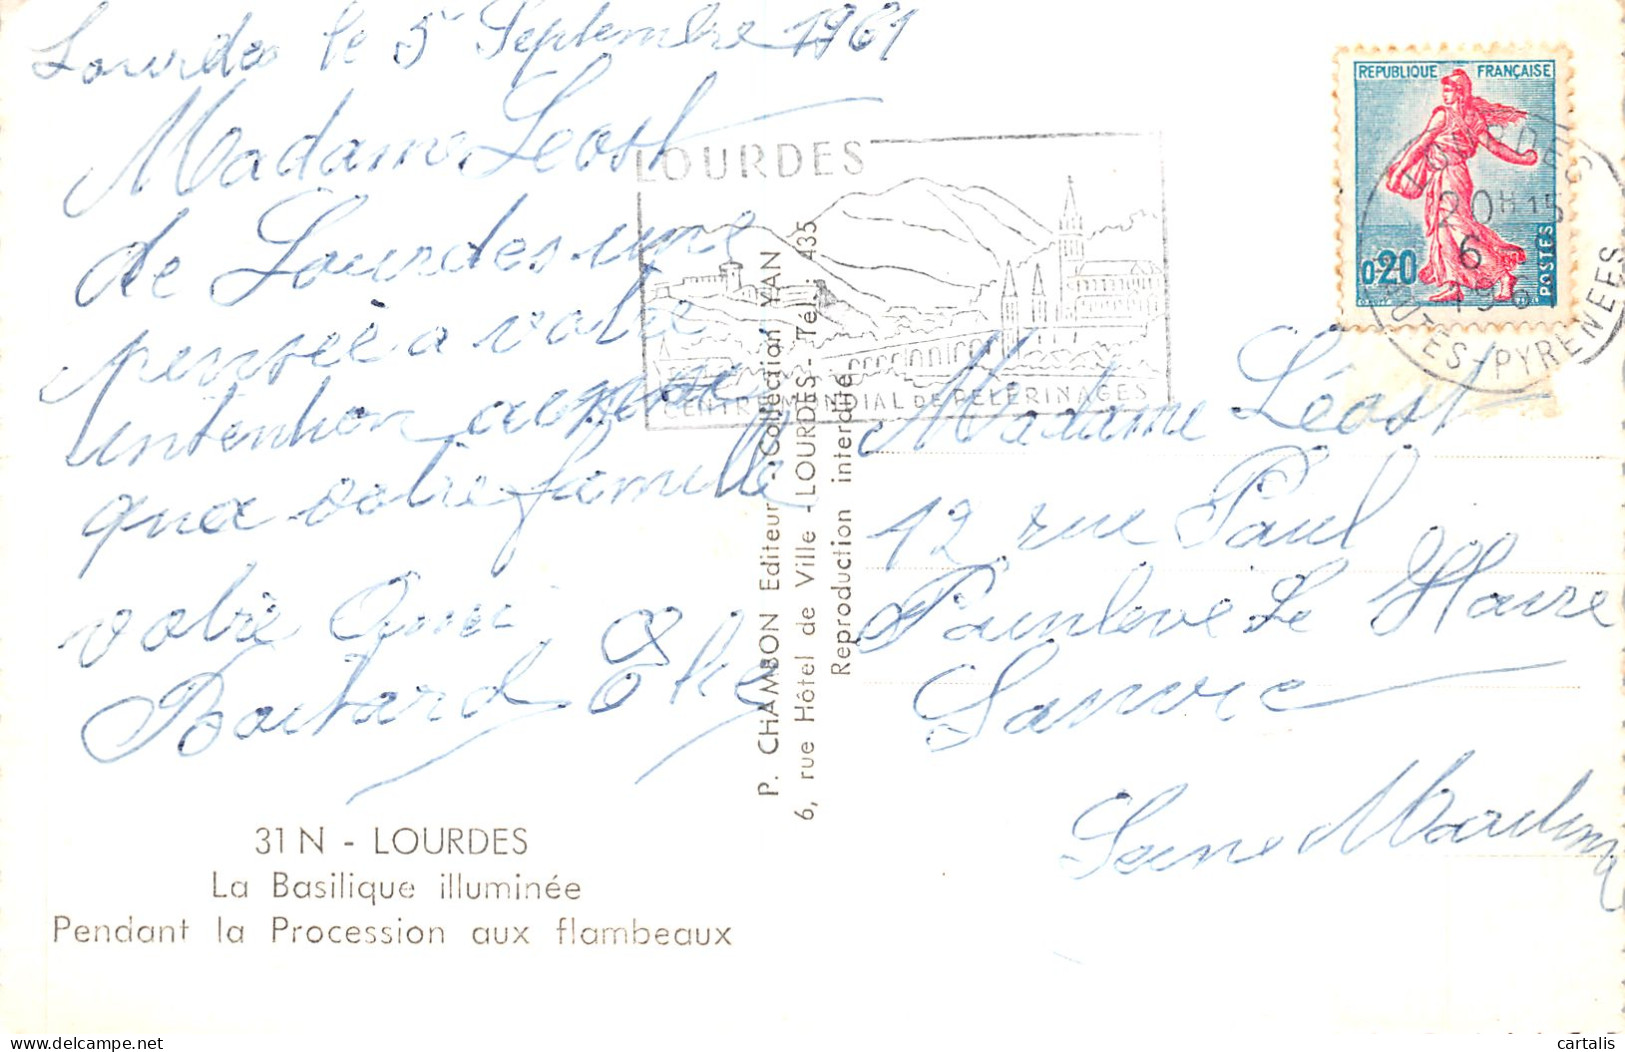 Lourdes le 5 Septembre 1961
Madame Léost
de Lourdes une
pensée a votre
intention
qua votre famille
votre Amei
31 N - LOURDES
La Basilique illuminée
Pendant la Procession aux flambeaux
P. CHAMBON Editeur - Collection YAN
6, rue Hôtel de Ville - LOURDES - Tél. 435
Reproduction interdite
LOURDES
CENTRE MONDIAL DE PELERINAGES
REPUBLIQUE FRANÇAISE
0,20
POSTES
LOURDES
20H15
6
HTES-PYRENEES
Madame Léost
12 rue Paul
Painleve Le Havre
Sanvic
Seine Maritime
cartalis